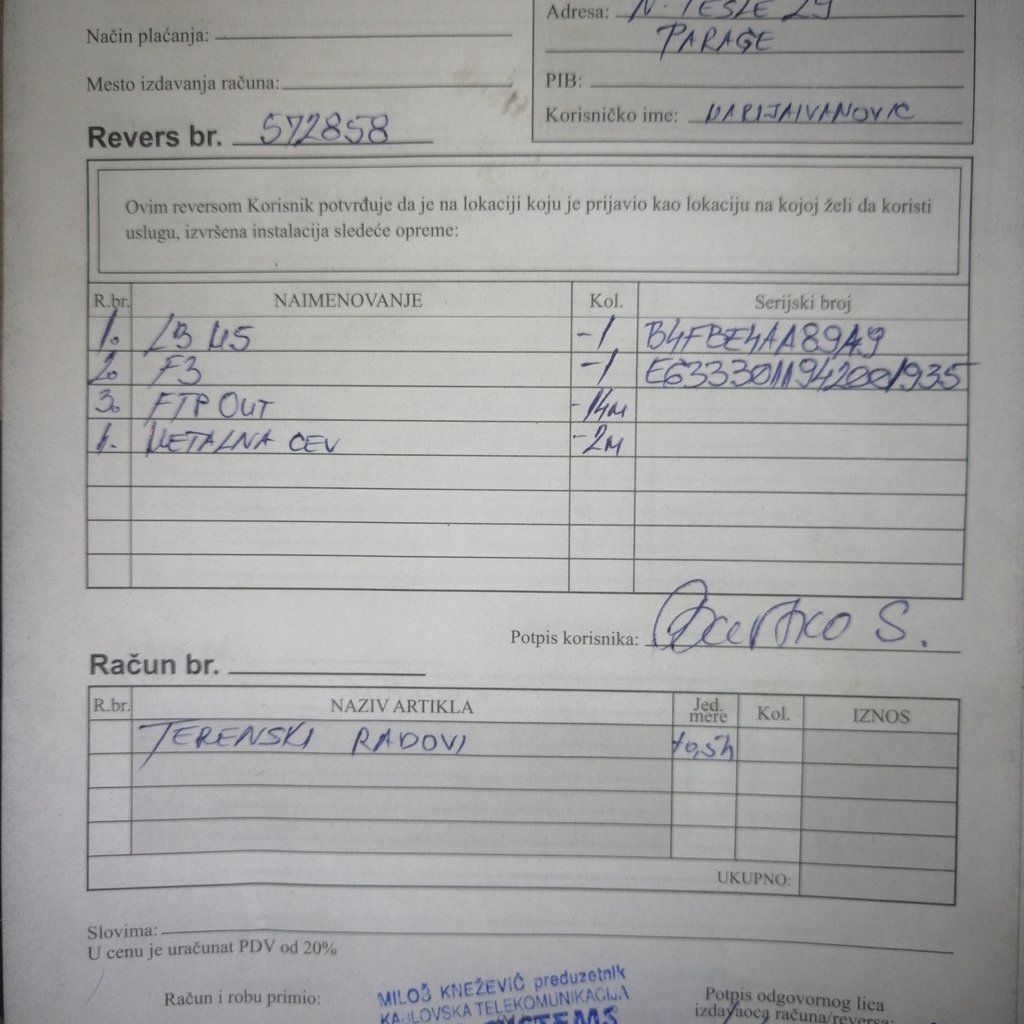 Adresa: N. TESLE 29
Način plaćanja:
PARAGE
Mesto izdavanja računa:
PIB:
Korisničko ime: DARIJAIVANOVIC
Revers br. 572858
Ovim reversom Korisnik potvrđuje da je na lokaciji koju je prijavio kao lokaciju na kojoj želi da koristi
uslugu, izvršena instalacija sledeće opreme:
R.br. NAIMENOVANJE Kol. Serijski broj
1. LB M5 -1 B4FBE4AA89A9
2. F3 -1 E6333011942001935
3. FTP OUT -14M
1. METALNA CEV -2M
Potpis korisnika: S.
Račun br.
R.br. NAZIV ARTIKLA Jed. mere Kol. IZNOS
TERENSKI RADOVI +0,5h
UKUPNO:
Slovima:
U cenu je uračunat PDV od 20%
Račun i robu primio:
MILOŠ KNEŽEVIĆ preduzetnik
KABLOVSKA TELEKOMUNIKACIJA
SYSTEMS
Potpis odgovornog lica
izdavaoca računa/reversa: